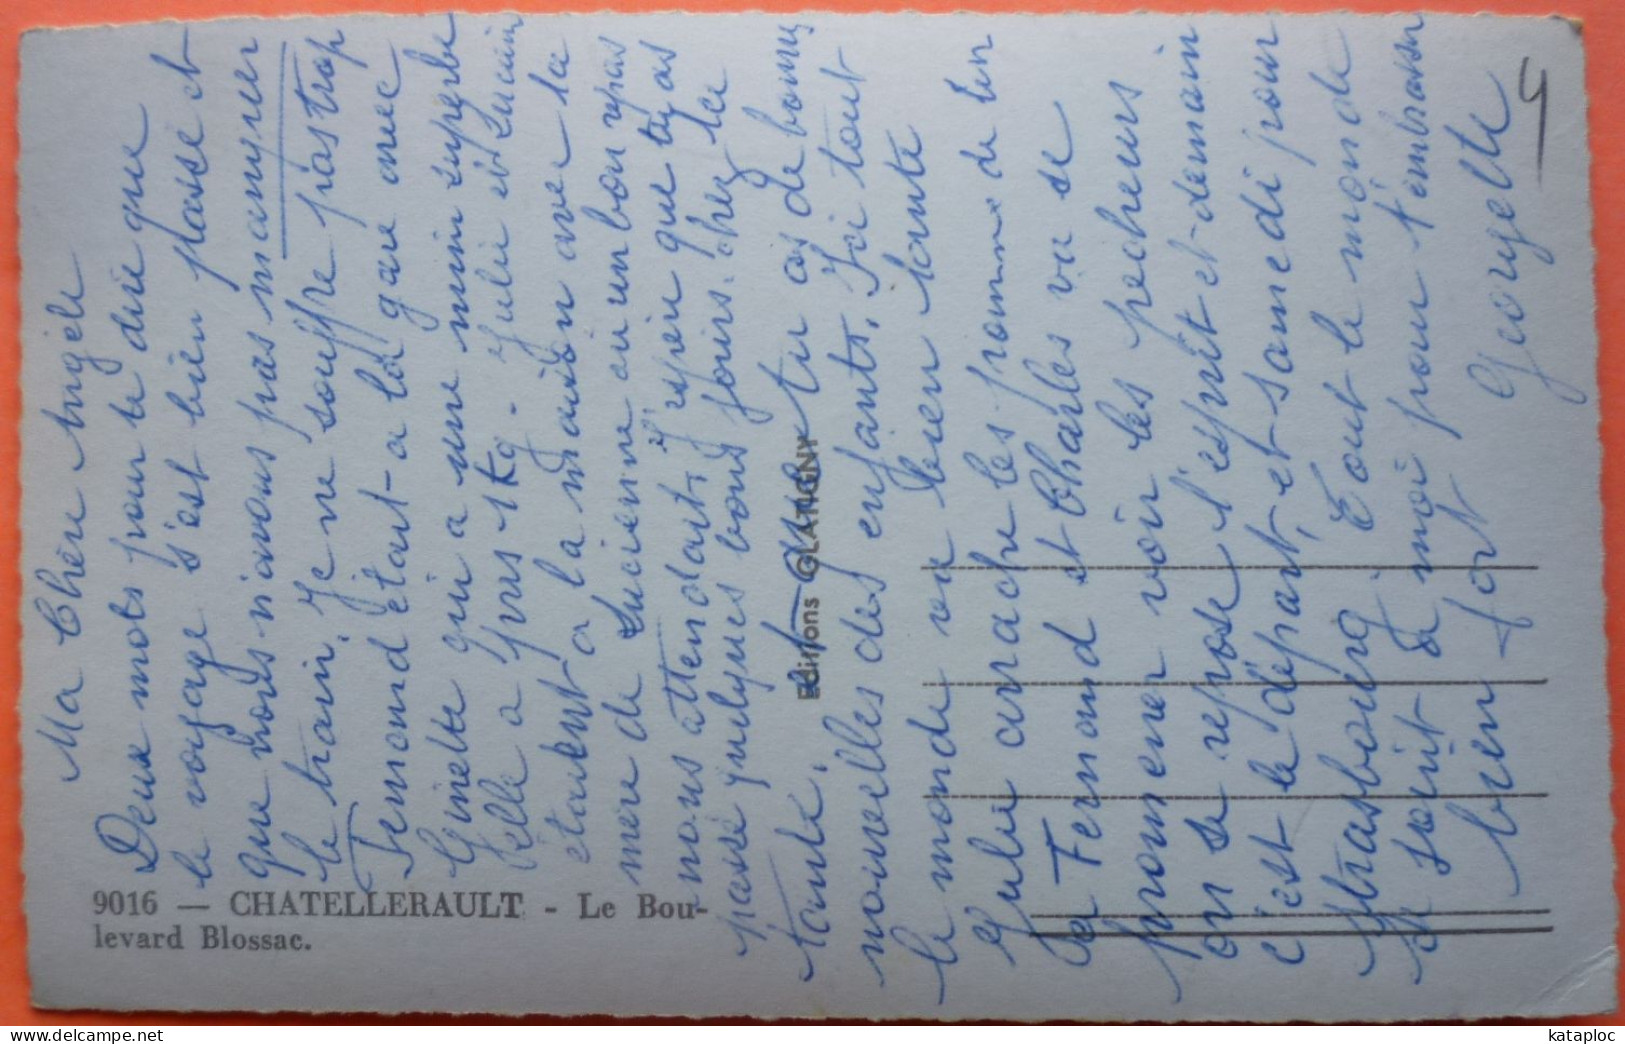 Ma Chère Angèle
Deux mots pour te dire que
le voyage s'est bien passé et
que nous n'avons pas manquer
le train. Je ne souffre pas trop
Fernand étant a la gare avec
Ginette qui a une mine superbe
elle a pris 1 kg. Julie et Lucien
étaient a la maison avec la
mere de Lucienne où un bon repas
nous attendait. J'espère que tu as
passé quelques bons jours chez ta
tante. et que tu as de bonnes
nouvelles des enfants. Ici tout
le monde va bien tante
Julie arrache les pomme de ter
re Fernand et Charles va se
promener voir les pecheurs
on se repose l'esprit et demain
c'est le départ, et samedi pour
Strasbourg. Tout le monde
se joint a moi pour t'embrasser
bien fort Georgette
9016 — CHATELLERAULT - Le Bou-
levard Blossac.
Editions GLATIGNY
kataploc